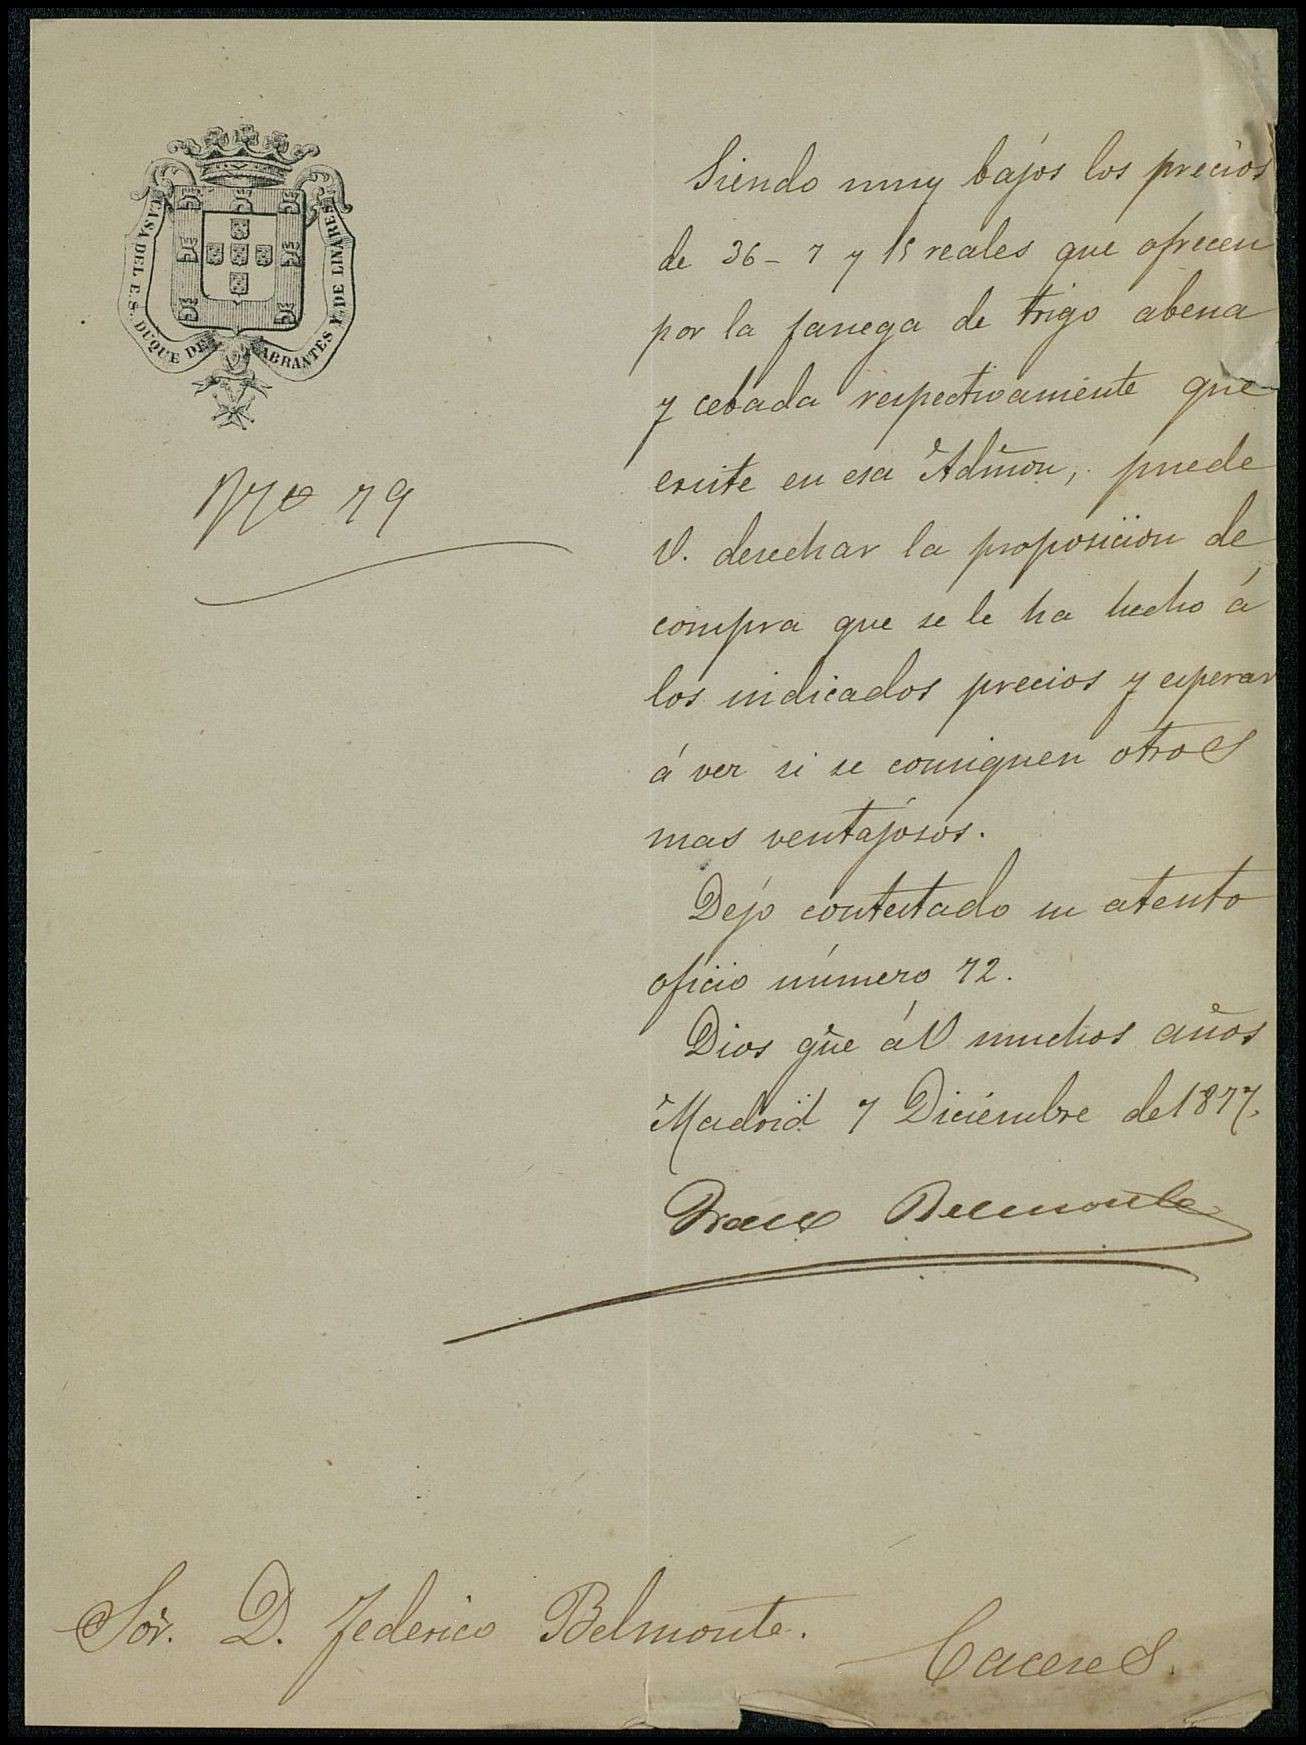 CASA DEL E.S. DUQUE DE ABRANTES Y DE LINARES
Nº 79
Siendo muy bajos los precios
de 36 - 7 y 15 reales que ofrecen
por la fanega de trigo abena
y cebada respectivamente que
existe en esa Admon, puede
V. desechar la proposicion de
compra que se le ha hecho á
los indicados precios y esperar
á ver si se consiguen otros
mas ventajosos.
Dejo contestado su atento
oficio número 72.
Dios gũe á V muchos años
Madrid 7 Diciembre de 1877.
Belmonte
Sor. D. Federico Belmonte.
Caceres.